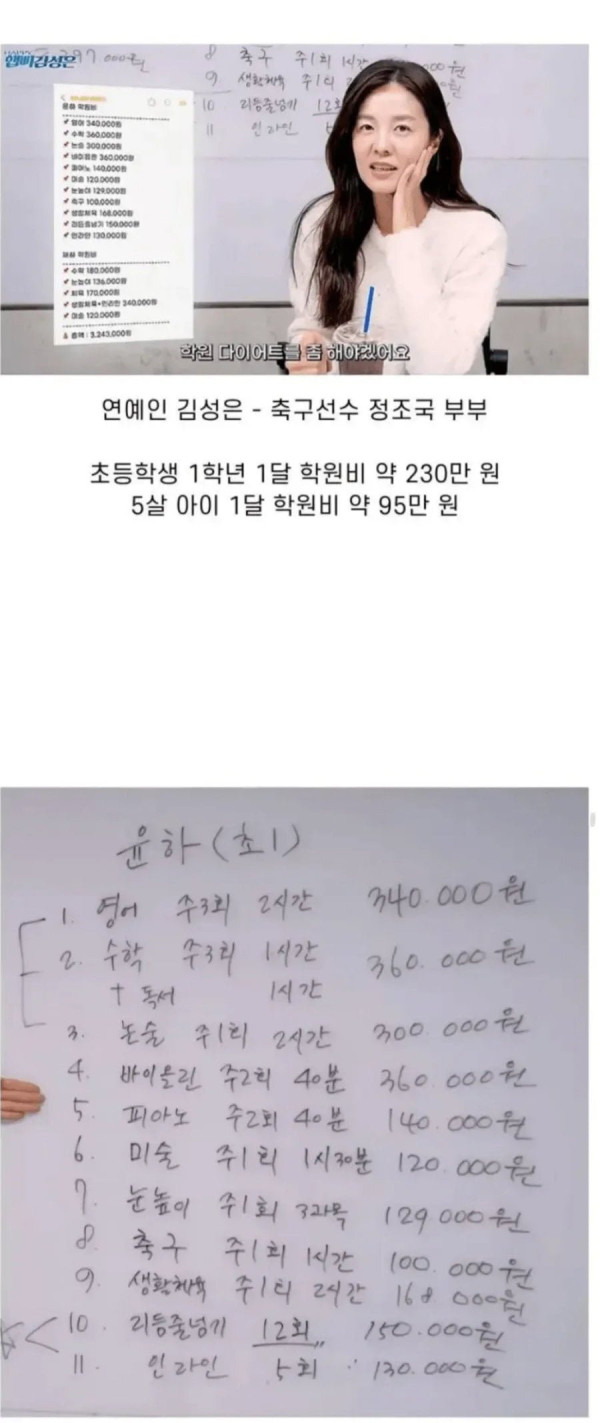 햅삐김성은
297,000원
8 축구 주1회 1시간
9 생활체육 주1회
10 리듬줄넘기 12회
11 인라인
윤하 학원비
영어 340,000원
수학 360,000원
논술 300,000원
바이올린 360,000원
피아노 140,000원
미술 120,000원
눈높이 129,000원
축구 100,000원
생활체육 168,000원
리듬줄넘기 150,000원
인라인 130,000원
재하 학원비
수학 180,000원
눈높이 136,000원
체육 170,000원
생활체육+인라인 340,000원
미술 120,000원
총액 : 3,243,000원
학원 다이어트를 좀 해야겠어요
연예인 김성은 - 축구선수 정조국 부부
초등학생 1학년 1달 학원비 약 230만 원
5살 아이 1달 학원비 약 95만 원
윤하 (초1)
1. 영어 주3회 2시간 340.000원
2. 수학 주3회 1시간 360.000원
+ 독서 1시간
3. 논술 주1회 2시간 300.000원
4. 바이올린 주2회 40분 360.000원
5. 피아노 주2회 40분 140.000원
6. 미술 주1회 1시30분 120.000원
7. 눈높이 주1회 3과목 129000원
8. 축구 주1회 1시간 100.000원
9. 생활체육 주1회 2시간 168000원
10. 리듬줄넘기 12회 150.000원
11. 인라인 5회 130.000원